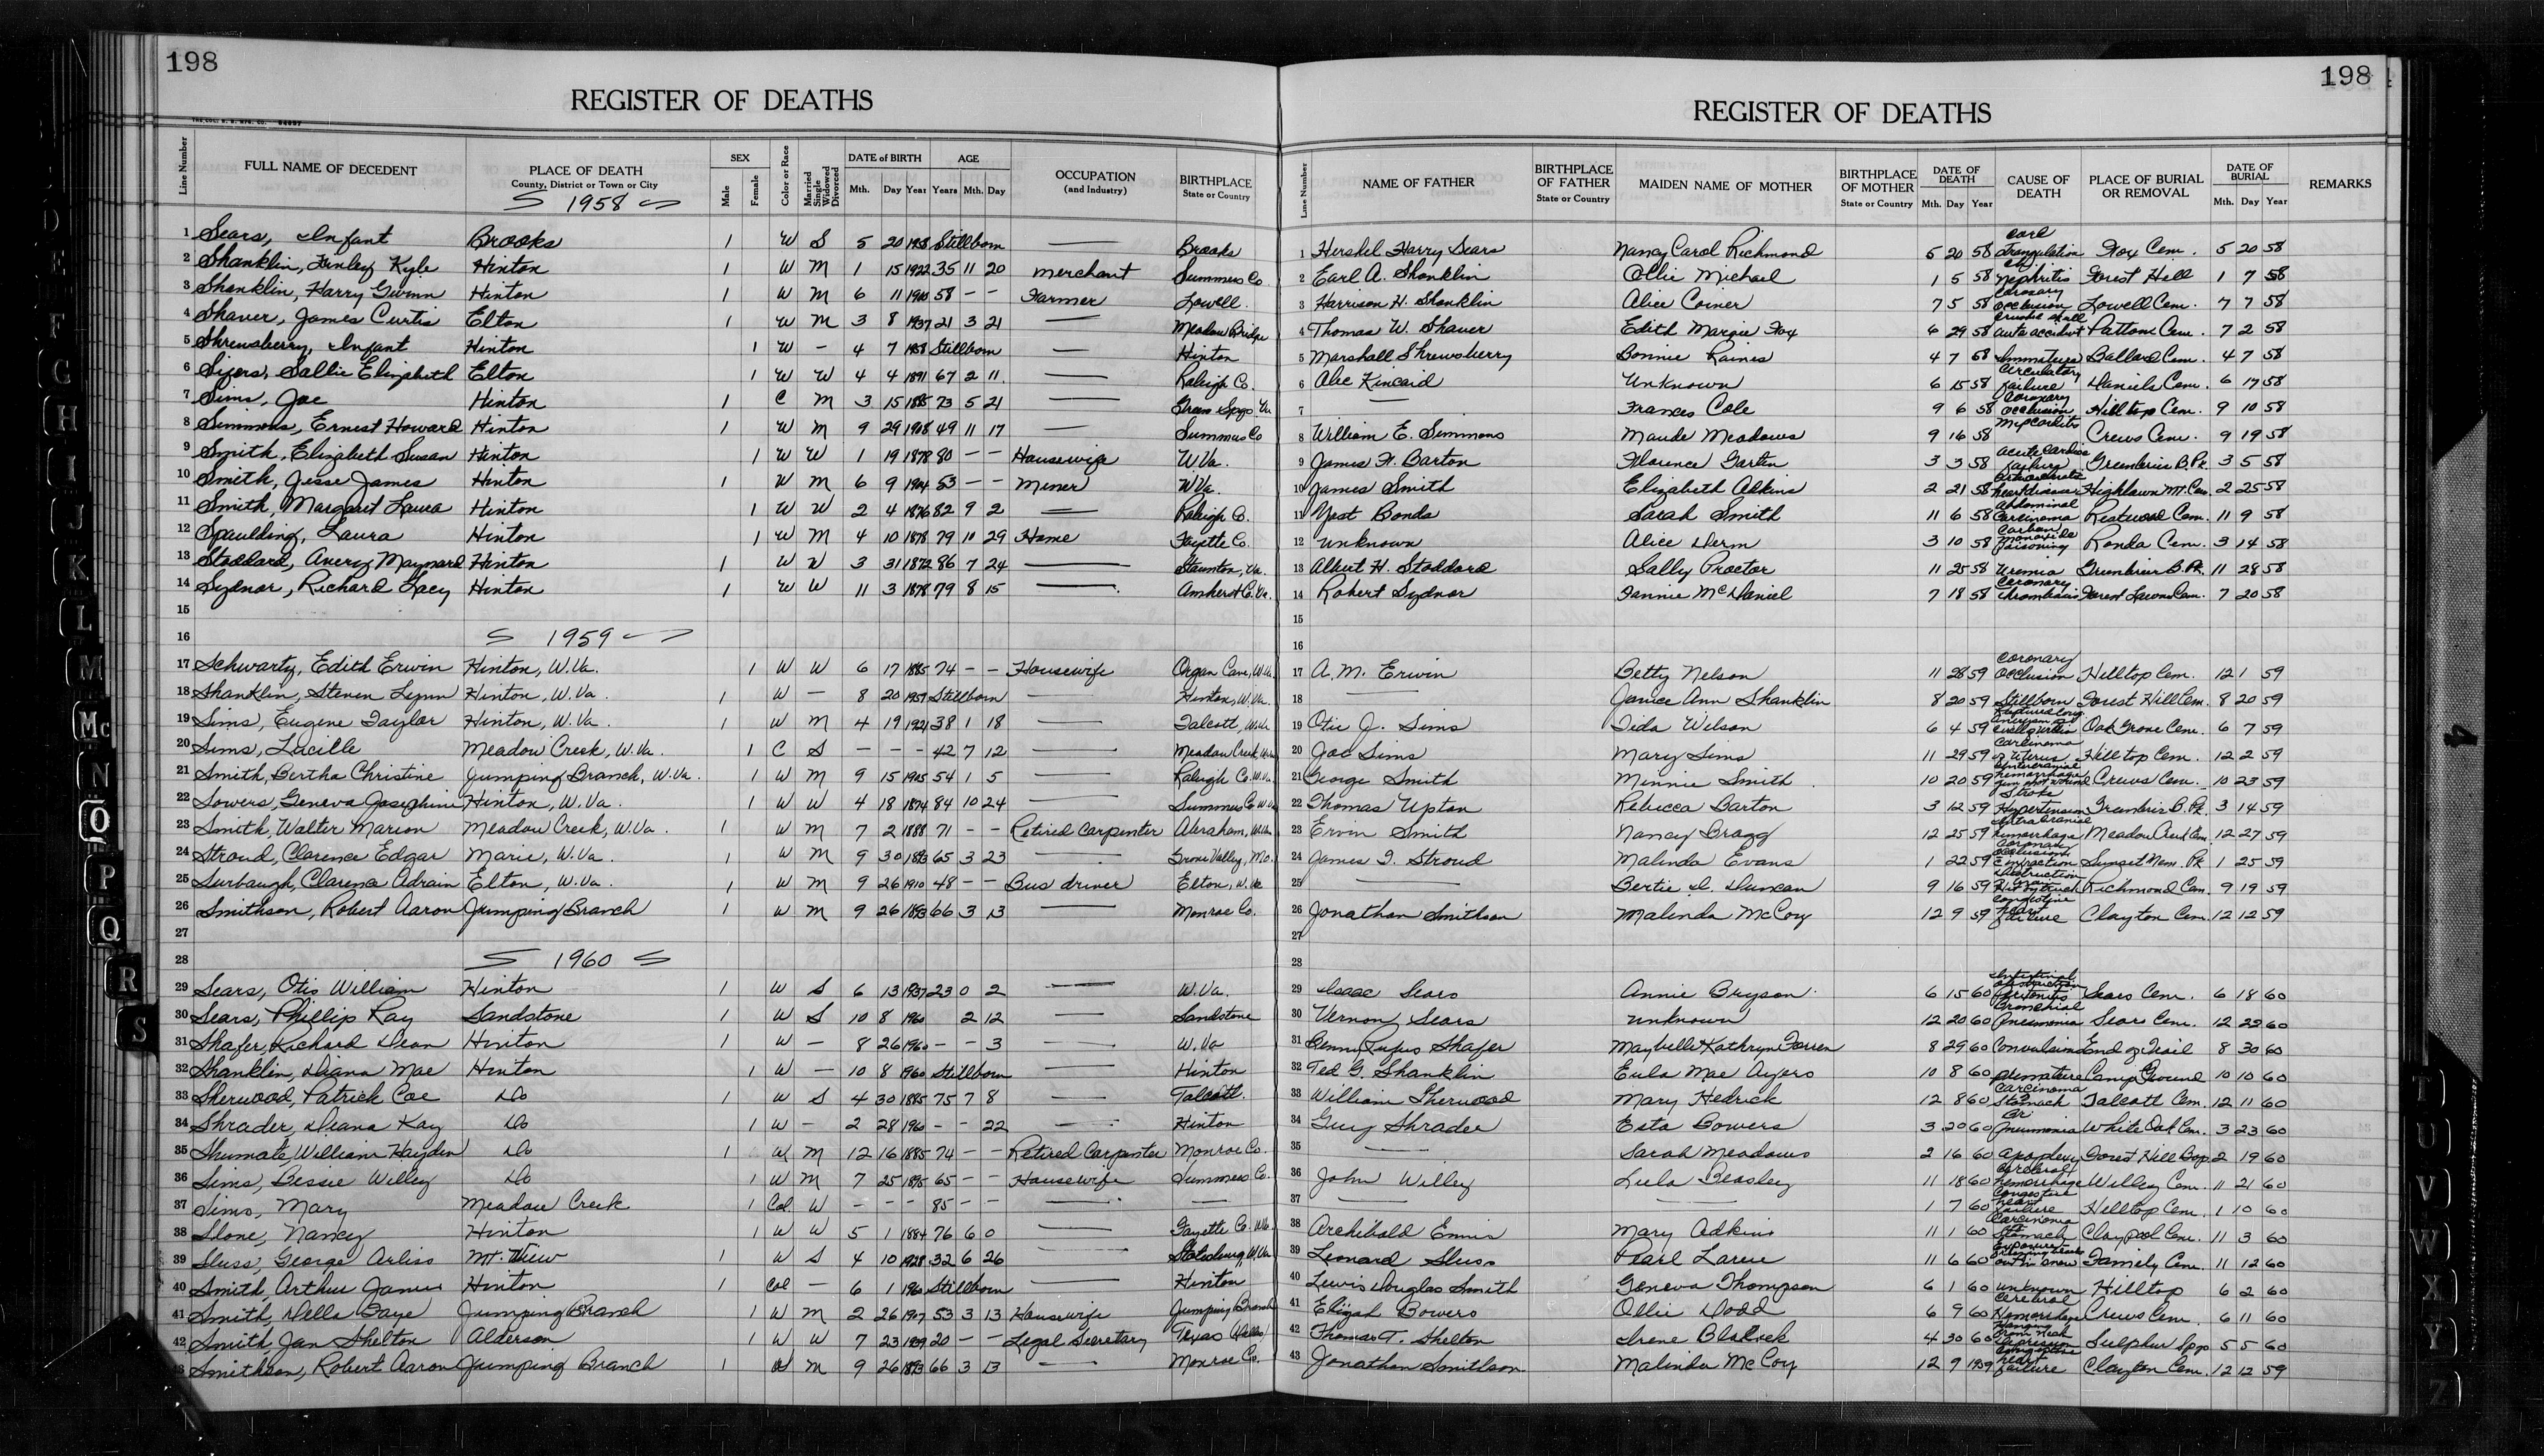 198
REGISTER OF DEATHS
Line Number
FULL NAME OF DECEDENT
PLACE OF DEATH
County, District or Town or City
SEX
Male
Female
Color or Race
Married Single Widowed Divorced
DATE of BIRTH
Mth. Day Year
AGE
Years Mth. Day
OCCUPATION
(and Industry)
BIRTHPLACE
State or Country
1958
1 Sears, Infant Brooks 1 W S 5 20 1958 Stillborn — Brooks
2 Shanklin, Finley Kyle Hinton 1 W M 1 15 1922 35 11 20 merchant Summers Co.
3 Shanklin, Harry Gwinn Hinton 1 W M 6 11 1900 58 – – Farmer Lowell
4 Shaver, James Curtis Elton 1 W M 3 8 1937 21 3 21 — Meadow Bridge
5 Shrewsberry, Infant Hinton 1 W – 4 7 1958 Stillborn — Hinton
6 Sizers, Sallie Elizabeth Elton 1 W W 4 4 1891 67 2 11 — Raleigh Co.
7 Sims, Joe Hinton 1 C M 3 15 1885 73 5 21 — Va.
8 Simmons, Ernest Howard Hinton 1 W M 9 29 1908 49 11 17 — Summers Co
9 Smith, Elizabeth Susan Hinton 1 W W 1 19 1878 80 – – Housewife W.Va.
10 Smith, Jesse James Hinton 1 W M 6 9 1904 53 – – Miner W.Va.
11 Smith, Margaret Laura Hinton 1 W W 2 4 1876 82 9 2 — Raleigh Co.
12 Spaulding, Laura Hinton 1 W M 4 10 1878 79 10 29 Home Fayette Co.
13 Stoddard, Avery Maynard Hinton 1 W W 3 31 1872 86 7 24 — Staunton, Va.
14 Sydnor, Richard Lacy Hinton 1 W W 11 3 1878 79 8 15 — Amherst Co. Va.
15
16 1959
17 Schwartz, Edith Erwin Hinton, W.Va. 1 W W 6 17 1885 74 – – Housewife Organ Cave, W.Va.
18 Shanklin, Steven Lynn Hinton, W.Va. 1 W – 8 20 1959 Stillborn — Hinton, W.Va.
19 Sims, Eugene Taylor Hinton, W.Va. 1 W M 4 19 1921 38 1 18 — Talcott, W.Va.
20 Sims, Lucille Meadow Creek, W.Va. 1 C S – – – 42 7 12 — Meadow Creek, W.Va.
21 Smith, Bertha Christine Jumping Branch, W.Va. 1 W M 9 15 1905 54 1 5 — Raleigh Co. W.Va.
22 Sowers, Geneva Josephine Hinton, W.Va. 1 W W 4 18 1874 84 10 24 — Summers Co. W.Va.
23 Smith, Walter Marion Meadow Creek, W.Va. 1 W M 7 2 1888 71 – – Retired Carpenter Abraham, W.Va.
24 Stroud, Clarence Edgar Marie, W.Va. 1 W M 9 30 1893 65 3 23 — Grove Valley, Mo.
25 Surbaugh, Clarence Adrain Elton, W.Va. 1 W M 9 26 1910 48 – – Bus driver Elton, W.Va.
26 Smithson, Robert Aaron Jumping Branch 1 W M 9 26 1893 66 3 13 — Monroe Co.
27
28 1960
29 Sears, Otis William Hinton 1 W S 6 13 1937 23 0 2 — W.Va.
30 Sears, Phillip Ray Sandstone 1 W S 10 8 1960 2 12 — Sandstone
31 Shafer, Richard Dean Hinton 1 W – 8 26 1960 – – 3 — W.Va
32 Shanklin, Diana Mae Hinton 1 W – 10 8 1960 Stillborn — Hinton
33 Sherwood, Patrick Coe Do 1 W S 4 30 1885 75 7 8 — Talcott
34 Shrader, Deana Kay Do 1 W – 2 28 1960 – – 22 — Hinton
35 Shumate, William Hayden Do 1 W M 12 16 1885 74 – – Retired Carpenter Monroe Co.
36 Sims, Bessie Willey Do 1 W M 7 25 1895 65 – – Housewife Summers Co.
37 Sims, Mary Meadow Creek 1 Col. W – – – 85 – – — —
38 Slone, Nancy Hinton 1 W W 5 1 1884 76 6 0 — Fayette Co. W.Va.
39 Sluss, George Arliss Mt. View 1 W S 4 10 1928 32 6 26 — W.Va
40 Smith, Arthur James Hinton 1 Col – 6 1 1960 Stillborn — Hinton
41 Smith, Della Faye Jumping Branch 1 W M 2 26 1907 53 3 13 Housewife Jumping Branch
42 Smith, Jan Shelton Alderson 1 W W 7 23 1939 20 – – Legal Secretary Texas
43 Smithson, Robert Aaron Jumping Branch 1 W M 9 26 1893 66 3 13 — Monroe Co.
198
REGISTER OF DEATHS
Line Number
NAME OF FATHER
BIRTHPLACE OF FATHER
State or Country
MAIDEN NAME OF MOTHER
BIRTHPLACE OF MOTHER
State or Country
DATE OF DEATH
Mth. Day Year
CAUSE OF DEATH
PLACE OF BURIAL OR REMOVAL
DATE OF BURIAL
Mth. Day Year
REMARKS
1 Hershel Harry Sears Nancy Carol Richmond 5 20 58 Cord Strangulation Fox Cem. 5 20 58
2 Earl A. Shanklin Ollie Michael 1 5 58 Nephritis Forest Hill 1 7 58
3 Harrison H. Shanklin Alice Comer 7 5 58 Coronary Occlusion Lowell Cem. 7 7 58
4 Thomas W. Shaver Edith Margie Fox 6 29 58 Crushed skull auto accident Patton Cem. 7 2 58
5 Marshall Shrewsberry Bonnie Raines 4 7 58 Immature Ballard Cem. 4 7 58
6 Alec Kincaid Unknown 6 15 58 Circulatory failure Daniels Cem. 6 17 58
7 — Frances Cole 9 6 58 Coronary Occlusion Hilltop Cem. 9 10 58
8 William E. Simmons Maude Meadows 9 16 58 Crews Cem. 9 19 58
9 James H. Barton Florence Gartin 3 3 58 Acute Cardiac failure Greenbrier B. Pk. 3 5 58
10 James Smith Elizabeth Adkins 2 21 58 heart disease Highlawn Mt. Cem. 2 25 58
11 Yost Bonds Sarah Smith 11 6 58 Abdominal Carcinoma Restwood Cem. 11 9 58
12 unknown Alice Derm 3 10 58 Carbon monoxide Poisoning Ronda Cem. 3 14 58
13 Albert H. Stoddard Sally Proctor 11 25 58 Uremia Greenbrier B. Pk. 11 28 58
14 Robert Sydnor Fannie McDaniel 7 18 58 Coronary thrombosis Forest Lawn Cem. 7 20 58
15
16
17 A. M. Erwin Betty Nelson 11 28 59 Coronary Occlusion Hilltop Cem. 12 1 59
18 — Janice Ann Shanklin 8 20 59 Stillborn Forest Hill Cem. 8 20 59
19 Otie J. Sims Tida Wilson 6 4 59 Oak Grove Cem. 6 7 59
20 Joe Sims Mary Sims 11 29 59 Carcinoma of Uterus Hilltop Cem. 12 2 59
21 George Smith Minnie Smith 10 20 59 Intercranial hemorrhage gun shot wound Crews Cem. 10 23 59
22 Thomas Upton Rebecca Barton 3 12 59 Stroke Hypertension Greenbrier B. Pk. 3 14 59
23 Ervin Smith Nancy Bragg 12 25 59 Intra Cranial hemorrhage Meadow Creek Cem. 12 27 59
24 James I. Stroud Malinda Evans 1 22 59 Coronary Occlusion Sunset Mem. Pk 1 25 59
25 — Bertie D. Duncan 9 16 59 Richmond Cem. 9 19 59
26 Jonathan Smithson Malinda McCoy 12 9 59 Congestive heart failure Clayton Cem. 12 12 59
27
28
29 Isaac Sears Annie Bryson 6 15 60 Intestinal obstruction Peritonitis Sears Cem. 6 18 60
30 Vernon Sears unknown 12 20 60 Bronchial Pneumonia Sears Cem. 12 22 60
31 Rufus Shafer Maybelle Kathryn Farren 8 29 60 Convulsions End of Trail 8 30 60
32 Ted G. Shanklin Eula Mae Ayers 10 8 60 premature Camp Ground 10 10 60
33 William Sherwood Mary Hedrick 12 8 60 Carcinoma Stomach Talcott Cem. 12 11 60
34 Guy Shrader Esta Bowers 3 20 60 Br Pneumonia White Oak Cem. 3 23 60
35 — Sarah Meadows 2 16 60 Apoplexy Forest Hill Bap. 2 19 60
36 John Willey Lula Beasley 11 18 60 Cerebral hemorrhage Willey Cem. 11 21 60
37 — — 1 7 60 Congestive heart failure Hilltop Cem. 1 10 60
38 Archibald Ennis Mary Adkins 11 1 60 Carcinoma Stomach Claypool Cem. 11 3 60
39 Leonard Sluss Pearl Larue 11 6 60 Exposure out in snow Family Cem. 11 12 60
40 Lewis Douglas Smith Geneva Thompson 6 1 60 unknown Hilltop 6 2 60
41 Elijah Bowers Ollie Dodd 6 9 60 Cerebral Hemorrhage Crews Cem. 6 11 60
42 Thomas T. Shelton Irene Blalock 4 30 60 Hanging from neck Depression Sulphur Spgs 5 5 60
43 Jonathan Smithson Malinda McCoy 12 9 1959 Congestive heart failure Clayton Cem. 12 12 59
G
H
I
J
K
L
M
Mc
N
O
P
Q
R
S
T
U
V
W
X
Y
Z
4